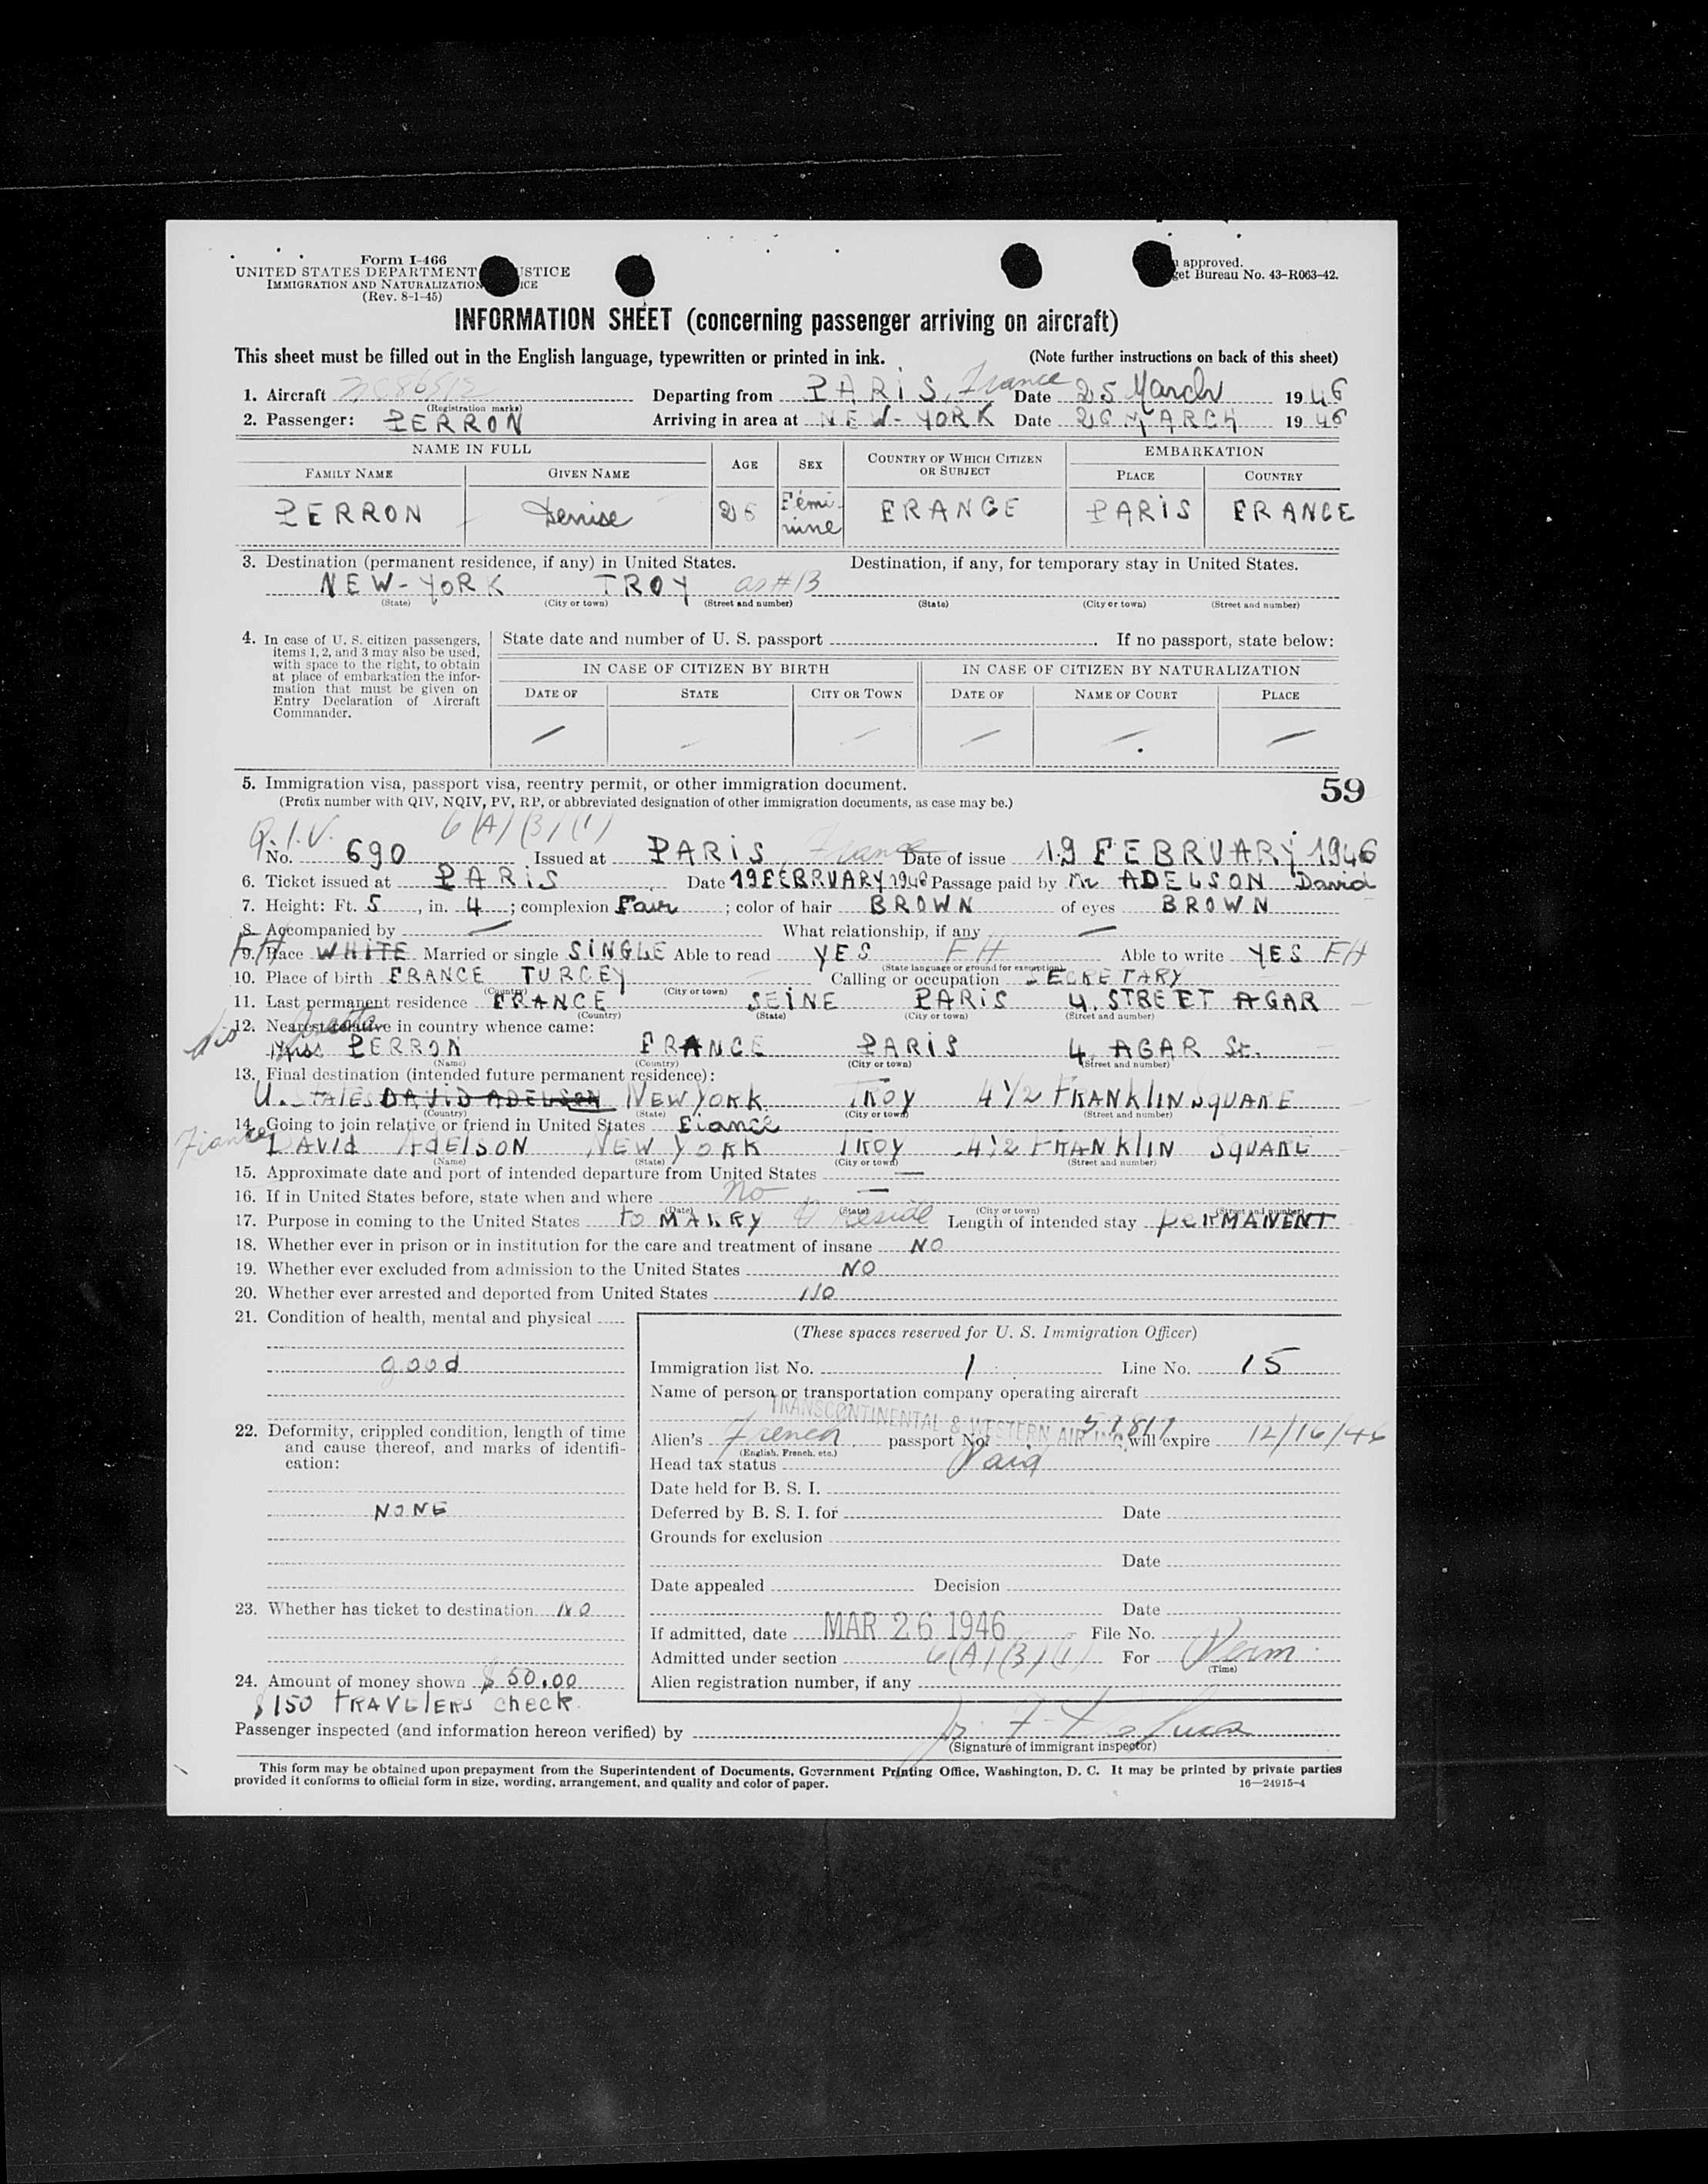 Form I-466
UNITED STATES DEPARTMENT USTICE
IMMIGRATION AND NATURALIZATION ICE
(Rev. 8-1-45)
approved.
get Bureau No. 43-R063-42.
INFORMATION SHEET (concerning passenger arriving on aircraft)
This sheet must be filled out in the English language, typewritten or printed in ink. (Note further instructions on back of this sheet)
1. Aircraft NC86512 Departing from PARIS, France Date 25 March 1946
(Registration marks)
2. Passenger: PERRON Arriving in area at NEW-YORK Date 26 MARCH 1946
NAME IN FULL AGE SEX COUNTRY OF WHICH CITIZEN OR SUBJECT EMBARKATION
FAMILY NAME GIVEN NAME PLACE COUNTRY
PERRON Denise Fémi- FRANCE PARIS FRANCE
nine
3. Destination (permanent residence, if any) in United States. Destination, if any, for temporary stay in United States.
NEW-YORK TROY as #13
(State) (City or town) (Street and number) (State) (City or town) (Street and number)
4. In case of U. S. citizen passengers, items 1, 2, and 3 may also be used, with space to the right, to obtain at place of embarkation the information that must be given on Entry Declaration of Aircraft Commander.
State date and number of U. S. passport If no passport, state below:
IN CASE OF CITIZEN BY BIRTH IN CASE OF CITIZEN BY NATURALIZATION
DATE OF STATE CITY OR TOWN DATE OF NAME OF COURT PLACE
5. Immigration visa, passport visa, reentry permit, or other immigration document. 59
(Prefix number with QIV, NQIV, PV, RP, or abbreviated designation of other immigration documents, as case may be.)
Q.I.V. 6(A)(3)(1)
No. 690 Issued at PARIS, France Date of issue 19 FEBRUARY 1946
6. Ticket issued at PARIS Date 19 FEBRUARY 1946 Passage paid by Mr ADELSON David
7. Height: Ft. 5, in. 4; complexion Fair; color of hair BROWN of eyes BROWN
8. Accompanied by — What relationship, if any —
FH 9. Race WHITE Married or single SINGLE Able to read YES FH Able to write YES FH
(State language or ground for exemption)
10. Place of birth FRANCE TURCEY Calling or occupation SECRETARY
(Country) (City or town)
11. Last permanent residence FRANCE SEINE PARIS 4, STREET AGAR
(Country) (State) (City or town) (Street and number)
12. Nearest relative in country whence came:
PERRON FRANCE PARIS 4, AGAR St.
(Name) (Country) (City or town) (Street and number)
13. Final destination (intended future permanent residence):
U. STATES DAVID ADELSON NEW YORK TROY 4 1/2 FRANKLIN SQUARE
(Country) (State) (City or town) (Street and number)
14. Going to join relative or friend in United States Fiancé
Fiance DAVID ADELSON NEW YORK TROY 4 1/2 FRANKLIN SQUARE
(Name) (State) (City or town) (Street and number)
15. Approximate date and port of intended departure from United States —
16. If in United States before, state when and where No —
(Date) (State) (City or town) (Street and number)
17. Purpose in coming to the United States to MARRY & reside Length of intended stay PERMANENT
18. Whether ever in prison or in institution for the care and treatment of insane NO
19. Whether ever excluded from admission to the United States NO
20. Whether ever arrested and deported from United States NO
21. Condition of health, mental and physical
good
22. Deformity, crippled condition, length of time and cause thereof, and marks of identification:
NONE
23. Whether has ticket to destination NO
24. Amount of money shown $ 50.00
$150 TRAVELERS check
(These spaces reserved for U. S. Immigration Officer)
Immigration list No. 1 Line No. 15
Name of person or transportation company operating aircraft
TRANSCONTINENTAL & WESTERN AIR INC.
Alien's French passport No. 51817 will expire 12/16/46
(English, French, etc.)
Head tax status Paid
Date held for B. S. I.
Deferred by B. S. I. for Date
Grounds for exclusion
Date
Date appealed Decision
Date
If admitted, date MAR 26 1946 File No.
Admitted under section 6(A)(3)(1) For Perm.
(Time)
Alien registration number, if any
Passenger inspected (and information hereon verified) by
(Signature of immigrant inspector)
This form may be obtained upon prepayment from the Superintendent of Documents, Government Printing Office, Washington, D. C. It may be printed by private parties
provided it conforms to official form in size, wording, arrangement, and quality and color of paper. 16—24915-4